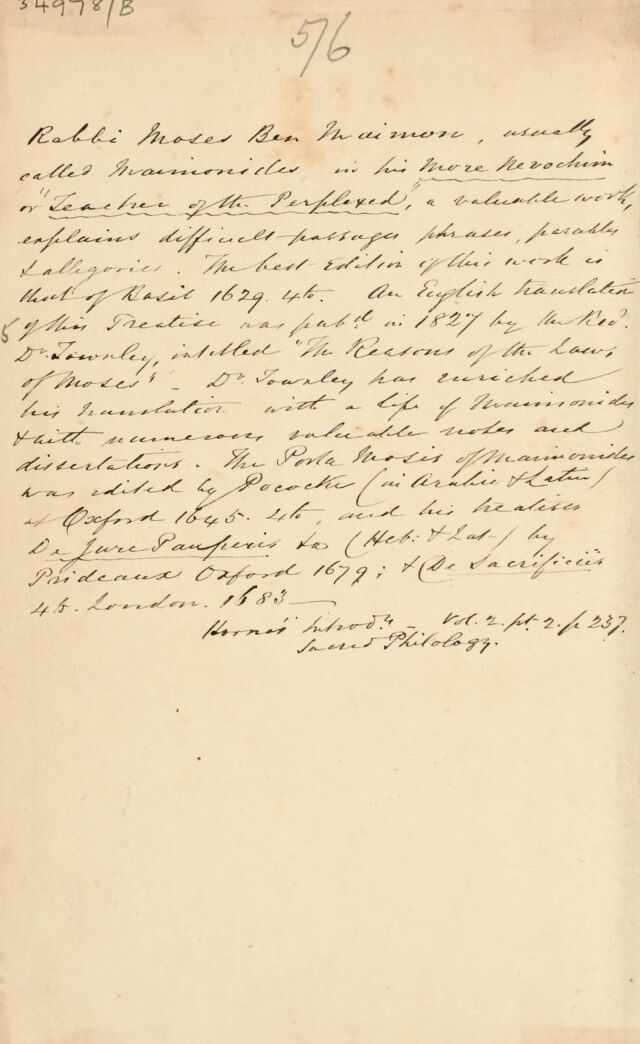 34978/B
5/6
Rabbi Moses Ben Maimon, usually
called Maimonides in his More Nevochim
or "Teacher of the Perplexed", a valuable work,
explains difficult passages phrases, parables
& allegories. The best Edition of this work is
that of Basil 1629. 4to. An English translation
of this Treatise was pubd. in 1827 by the Revd.
5
Dr. Townley, intitled "The Reasons of the Laws
of Moses" - Dr. Townley has enriched
his translation with a life of Maimonides
& with numerous valuable notes and
dissertations. The Porta Mosis of Maimonides
was edited by Pococke (in Arabic & Latin)
at Oxford 1645. 4to, and his treatises
De Jure Pauperis &c (Heb: & Lat-) by
Prideaux Oxford 1679; & De Sacrificiis
4to. London. 1683 —
Horne's Introdn. - Vol. 2. pt. 2. p 237.
Sacred Philology.